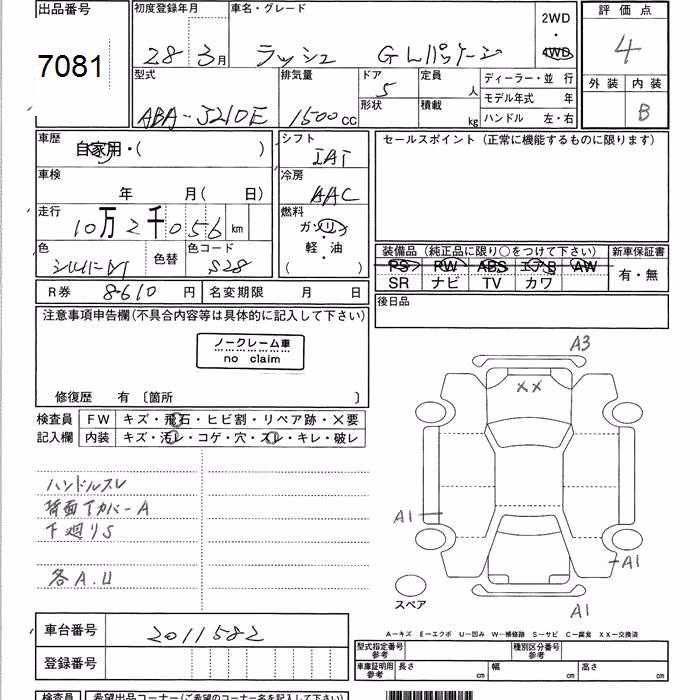 出品番号 初度登録年月 車名・グレード 2WD 評価点
7081 28 3月 ラッシュ GLパッケージ ・ 4WD 4
型式 排気量 ドア 定員 ディーラー・並 行 外装 内装
ABA-J210E 1500cc 5 人 モデル年式 年 B
形状 積載 kg ハンドル 左・右
車歴 シフト セールスポイント (正常に機能するものに限ります)
自家用・( ) IAT
車検 冷房
年 月(日) AAC
走行 燃料
10万2千056km ガソリン
色 色替 色コード 軽・油 装備品 (純正品に限り○をつけて下さい) 新車保証書
シルバーM S28 ( ) PS PW ABS エアB AW 有・無
SR ナビ TV カワ
R券 8610円 名変期限 月 日 後日品
注意事項申告欄(不具合内容等は具体的に記入して下さい)
ノークレーム車
no claim
A3
XX
修復歴 有 〔箇所 〕
検査員 FW キズ・飛石・ヒビ割・リペア跡・×要
記入欄 内装 キズ・汚レ・コゲ・穴・スレ・キレ・破レ
ハンドルスレ
背面Tカバー A
下廻りS
A1
A1
各A.U
スペア
A1
A-キズ E-エクボ U-凹み W-補修跡 S-サビ C-腐食 XX-交換済
車台番号 2011582
型式指定番号 参考 種別区分番号 参考
登録番号
車庫証明用 参考 長さ cm 幅 cm 高さ cm
検査員 希望出品コーナー(ご希望のコーナー名を記入して下さい)